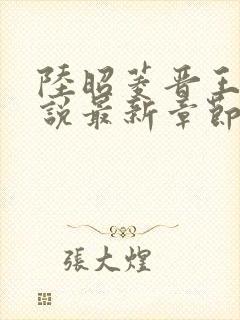 陸昭菱晋王
說最新章節
張大煌